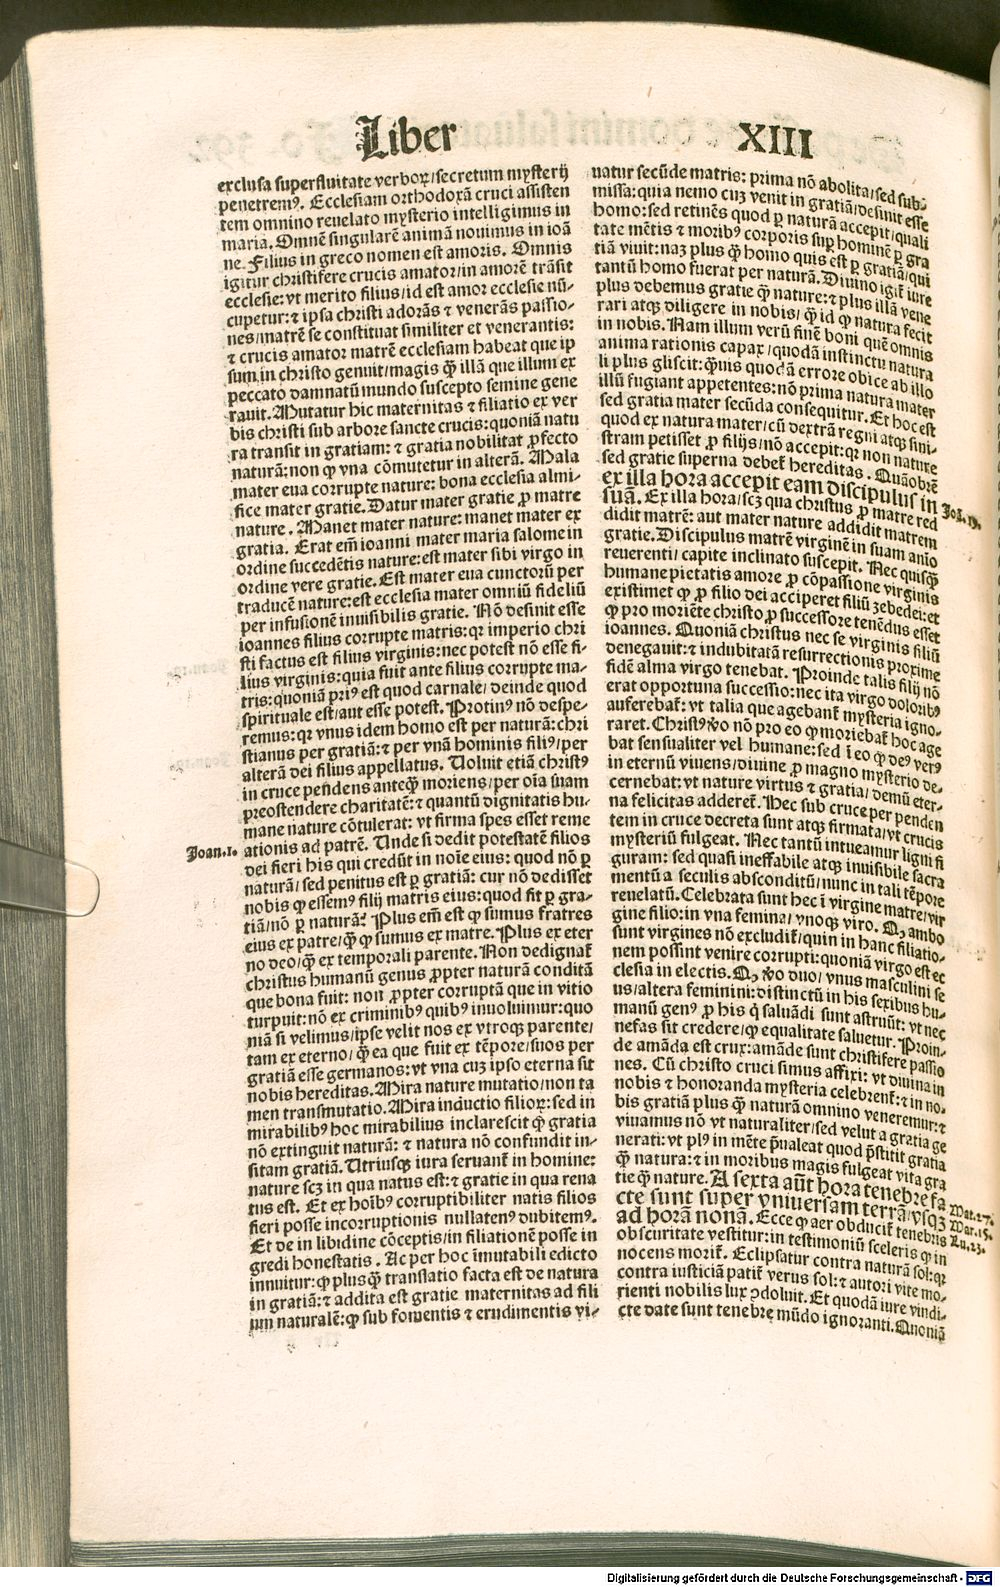 Liber XIII
exclusa superfluitate verboꝝ/secretum mysterij
penetremꝰ. Ecclesiam orthodoxā cruci assisten
tem omnino reuelato mysterio intelligimus in
maria. Omnē singularē animā nouimus in ioā
ne. Filius in greco nomen est amoris. Omnis
igitur christifere crucis amator/in amorē trāsit
ecclesie: vt merito filius/id est amor ecclesie nū-
cupetur: ⁊ ipsa christi adorās ⁊ venerās passio-
nes/matrē se constituat similiter et venerantis:
⁊ crucis amator matrē ecclesiam habeat que ip
sum in christo genuit/magis ꝙ̄ illā que illum ex
peccato damnatū mundo suscepto semine gene
rauit. Mutatur hic maternitas ⁊ filiatio ex ver
bis christi sub arbore sancte crucis: quoniā natu
ra transit in gratiam: ⁊ gratia nobilitat ꝓfecto
naturā: non ꝙ vna cōmutetur in alterā. Mala
mater eua corrupte nature: bona ecclesia almi-
fice mater gratie. Datur mater gratie ꝓ matre
nature. Manet mater nature: manet mater ex
gratia. Erat em̄ ioanni mater maria salome in
ordine succedētis nature: est mater sibi virgo in
ordine vere gratie. Est mater eua cunctorū per
traducē nature: est ecclesia mater omniū fideliū
per infusionē inuisibilis gratie. Nō desinit esse
ioannes filius corrupte matris: qꝛ imperio chri
sti factus est filius virginis: nec potest nō esse fi-
lius virginis: quia fuit ante filius corrupte ma-
tris: quoniā priꝰ est quod carnale/ deinde quod
spirituale est/aut esse potest. Protinꝰ nō despe-
remus: qꝛ vnus idem homo est per naturā: chri
stianus per gratiā: ⁊ per vnā hominis filiꝰ/per
alterā dei filius appellatus. Uoluit etiā christꝰ
in cruce pendens anteꝙ̄ moriens/per oīa suam
preostendere charitatē: ⁊ quantū dignitatis hu-
mane nature cōtulerat: vt firma spes esset reme
Joan.1.
ationis ad patrē. Unde si dedit potestatē filios
dei fieri his qui credūt in noīe eius: quod nō ꝑ
naturā/ sed penitus est ꝑ gratiā: cur nō dedisset
nobis ꝙ essemꝰ filij matris eius: quod fit ꝑ gra-
tiā/nō ꝑ naturā? Plus em̄ est ꝙ sumus fratres
eius ex patre/ꝙ̄ ꝙ sumus ex matre. Plus ex eter
no deo/ꝙ̄ ex temporali parente. Non dedignat̄
christus humanū genus ꝓpter naturā conditā
que bona fuit: non ꝓpter corruptā que in vitio
turpuit: nō ex criminibꝰ quibꝰ inuoluimur: quo
niā si velimus/ipse velit nos ex vtroqꝫ parente/
tam ex eterno/ꝙ̄ ea que fuit ex tēpore/suos per
gratiā esse germanos: vt vna cuꝫ ipso eterna sit
nobis hereditas. Mira nature mutatio/non ta
men transmutatio. Mira inductio filioꝝ: sed in
mirabilibꝰ hoc mirabilius inclarescit ꝙ̄ gratia
nō extinguit naturā: ⁊ natura nō confundit in-
sitam gratiā. Utriusqꝫ iura seruant̄ in homine:
nature scꝫ in qua natus est: ⁊ gratie in qua rena
tus est. Et ex hoībꝰ corruptibiliter natis filios
fieri posse incorruptionis nullatenꝰ dubitemꝰ.
Et de in libidine cōceptis/in filiationē posse in
gredi honestatis. Ac per hoc īmutabili edicto
innuitur: ꝙ plusꝙ̄ translatio facta est de natura
in gratiā: ⁊ addita est gratie maternitas ad fili
um naturalē: ꝙ sub fouentis ⁊ erudimentis vi-
uatur secūde matris: prima nō abolita/sed sub-
missa: quia nemo cuꝫ venit in gratiā/desinit esse
homo: sed retinēs quod ꝑ naturā accepit/quali
tate mētis ⁊ moribꝰ corporis suꝑ hominē ꝑ gra
tiā viuit: naꝫ plus ꝙ̄ homo quis est ꝑ gratiā/qui
tantū homo fuerat per naturā. Diuino igit̄ iure
plus debemus gratie ꝙ̄ nature: ⁊ plus illā vene
rari atqꝫ diligere in nobis/ ꝙ̄ id ꝙ natura fecit
in nobis. Nam illum verū finē boni quē omnis
anima rationis capax/quodā instinctu natura
li plus gliscit: ꝙ̄uis quodā errore obice ab illo
illū fugiant appetentes: nō prima natura mater
sed gratia mater secūda consequitur. Et hoc est
quod ex natura mater/cū dextrā regni atqꝫ sini-
stram petisset ꝓ filijs/nō accepit: qꝛ non nature
sed gratie superna debet̄ hereditas. Quāobrē
ex illa hora accepit eam discipulus in
Joā.19.
suā. Ex illa hora/scꝫ qua christus ꝓ matre red
didit matrē: aut mater nature addidit matrem
gratie. Discipulus matrē virginē in suam aīo
reuerenti/ capite inclinato suscepit. Nec quisꝙ̄
humane pietatis amore ꝓ cōpassione virginis
existimet ꝙ ꝓ filio dei acciperet filiū zebedei: et
ꝙ pro moriēte christo ꝓ successore tenēdus esset
ioannes. Quoniā christus nec se virginis filiū
denegauit: ⁊ indubitatā resurrectionis proxime
fidē alma virgo tenebat. Proinde talis filij nō
erat opportuna successio: nec ita virgo doloribꝰ
auferebat̄: vt talia que agebant̄ mysteria igno-
raret. Christꝰ v̄o nō pro eo ꝙ moriebat̄ hoc age
bat sensualiter vel humane: sed ī eo ꝙ deꝰ verꝰ
in eternū viuens/diuine ꝓ magno mysterio de-
cernebat: vt nature virtus ⁊ gratia/ demū eter-
na felicitas adderet̄. Hec sub cruce per penden
tem in cruce decreta sunt atqꝫ firmata/vt crucis
mysteriū fulgeat. Nec tantū intueamur ligni fi
guram: sed quasi ineffabile atqꝫ inuisibile sacra
mentū a seculis absconditū/nunc in tali tēpore
reuelatū. Celebrata sunt hec ī virgine matre/vir
gine filio: in vna femina/ vnoqꝫ viro. Qꝫ ambo
sunt virgines nō excludit̄/quin in hanc filiatio-
nem possint venire corrupti: quoniā virgo est ec
clesia in electis. Qꝫ v̄o duo/ vnus masculini se
us/altera feminini: distinctū in his sexibus hu-
manū genꝰ ꝓ his q̇ saluādi sunt astruūt: vt nec
nefas sit credere/ꝙ equalitate saluetur. Proin-
de amāda est crux: amāde sunt christifere passio
nes. Cū christo cruci simus affixi: vt diuina in
nobis ⁊ honoranda mysteria celebrent̄: ⁊ in no-
bis gratiā plus ꝙ̄ naturā omnino veneremur: ⁊
viuamus nō vt naturaliter/sed velut a gratia ge
nerati: vt plꝰ in mēte p̄ualeat quod p̄stitit gratia
ꝙ̄ natura: ⁊ in moribus magis fulgeat vita gra
tie ꝙ̄ nature. A sexta aūt hora tenebre fa
cte sunt super vniuersam terrā/vsqꝫ
Mat.27.
ad horā nonā. Ecce ꝙ aer obducit̄ tenebris
Mar.15.
Lu.23.
obscuritate vestitur: in testimoniū sceleris ꝙ in
nocens morit̄. Eclipsatur contra naturā sol: qꝛ
contra iusticiā patit̄ verus sol: ⁊ autori vite mo-
rienti nobilis lux ꝯdoluit. Et quodā iure vindi-
cte date sunt tenebre mūdo ignoranti. Quoniā